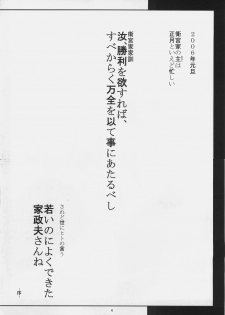 2006年元旦
衛宮家の主は
正月といえど忙しい
衛宮家家訓
汝、勝利を欲すれば、
すべからく万全を以て事にあたるべし
されど世にヒトの言う
若いのによくできた
家政夫さんね